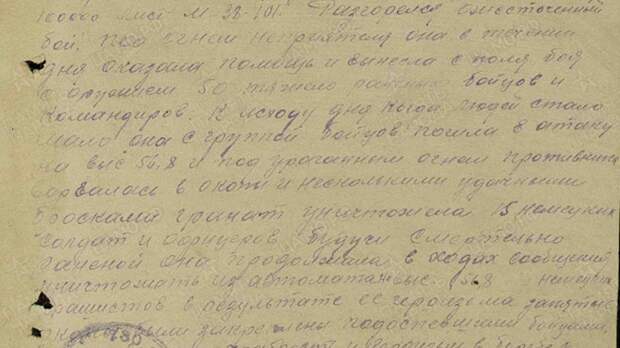 карта М-38-101. Разгорелся ожесточенный
бой, под огнем неприятеля она в течении
дня оказала помощь и вынесла с поля боя
с оружием 50 тяжело раненых бойцов и
командиров. К исходу дня когда людей стало
мало она с группой бойцов пошла в атаку
на выс 56,8 и под ураганным огнем противника
ворвалась в окопы и несколькими удачными
бросками гранат уничтожела 15 немецких
солдат и офицеров будучи смертельно
раненой она продолжала в ходах сообщений
уничтожать из автомата выс. 56.8 немецких
фашистов в результате ее героизма занятые
были закреплены подоспевшими бойцами,